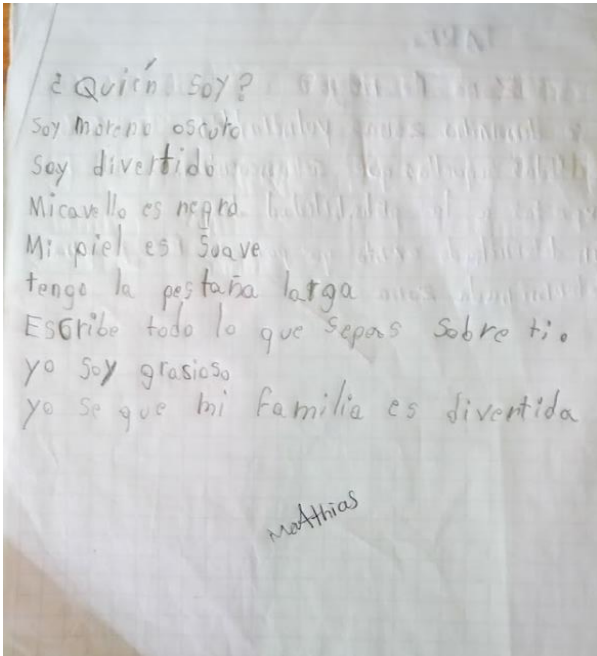 ¿Quién soy?
Soy moreno oscuro
Soy divertido
Micavello es negro
Mi piel es Suave
tengo la pestaña larga
Escribe todo lo que sepas sobre ti.
yo soy grasioso
yo se que mi familia es divertida
MaAthias